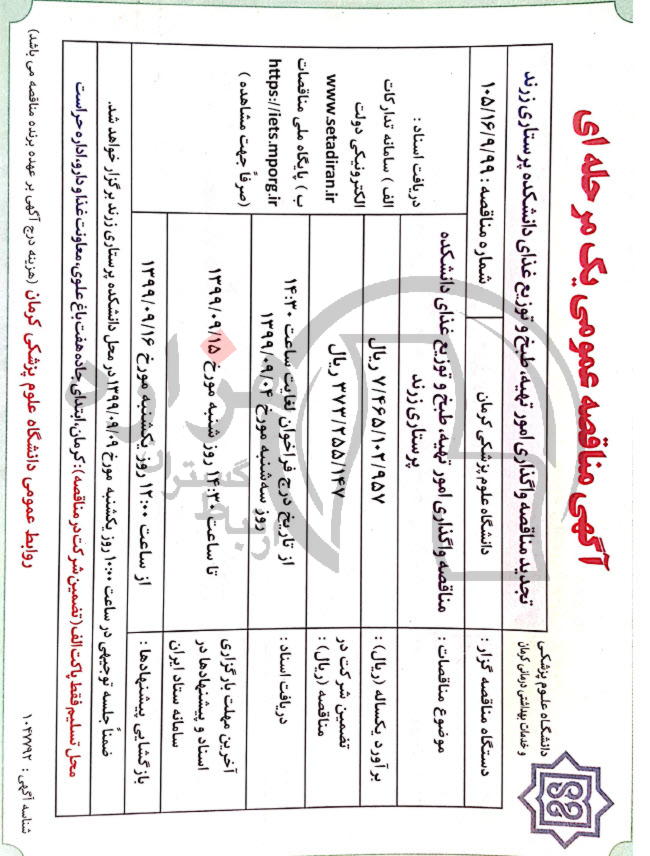 آگهی مناقصه عمومی یک مرحله ای
دانشگاه علوم پزشکی
و خدمات بهداشتی درمانی کرمان
تجدید مناقصه واگذاری امور تهیه، طبخ و توزیع غذای دانشکده پرستاری زرند
دستگاه مناقصه گزار :
دانشگاه علوم پزشکی کرمان
شماره مناقصه : ۱۰۵/۱۶/۹/۹۹
موضوع مناقصات :
مناقصه واگذاری امور تهیه، طبخ و توزیع غذای دانشکده
پرستاری زرند
برآورد یکساله (ریال) :
۷/۴۶۵/۱۰۲/۹۵۷ ریال
تضمین شرکت در
مناقصه (ریال) :
۳۷۳/۲۵۵/۱۴۷ ریال
دریافت اسناد :
از تاریخ درج فراخوان لغایت ساعت ۱۴:۳۰
روز سه‌شنبه مورخ ۱۳۹۹/۰۹/۰۴
آخرین مهلت بارگزاری
اسناد و پیشنهادها در
سامانه ستاد ایران
تا ساعت ۱۴:۳۰ روز شنبه مورخ ۱۳۹۹/۰۹/۱۵
بازگشایی پیشنهادها :
از ساعت ۱۲:۰۰ روز یکشنبه مورخ ۱۳۹۹/۰۹/۱۶
دریافت اسناد :
الف ) سامانه تدارکات
الکترونیکی دولت
www.setadiran.ir
ب ) پایگاه ملی مناقصات
https://iets.mporg.ir
(صرفاً جهت مشاهده )
ضمناً جلسه توجیهی در ساعت ۱۰:۰۰ روز یکشنبه مورخ ۱۳۹۹/۰۹/۰۹ در محل دانشکده پرستاری زرند برگزار خواهد شد.
محل تسلیم فقط پاکت الف (تضمین شرکت در مناقصه) : کرمان، ابتدای جاده هفت باغ علوی، معاونت غذا و دارو، اداره حراست
شناسه آگهی : ۱۰۴۷۷۹۲
روابط عمومی دانشگاه علوم پزشکی کرمان (هزینه درج آگهی بر عهده برنده مناقصه می باشد)